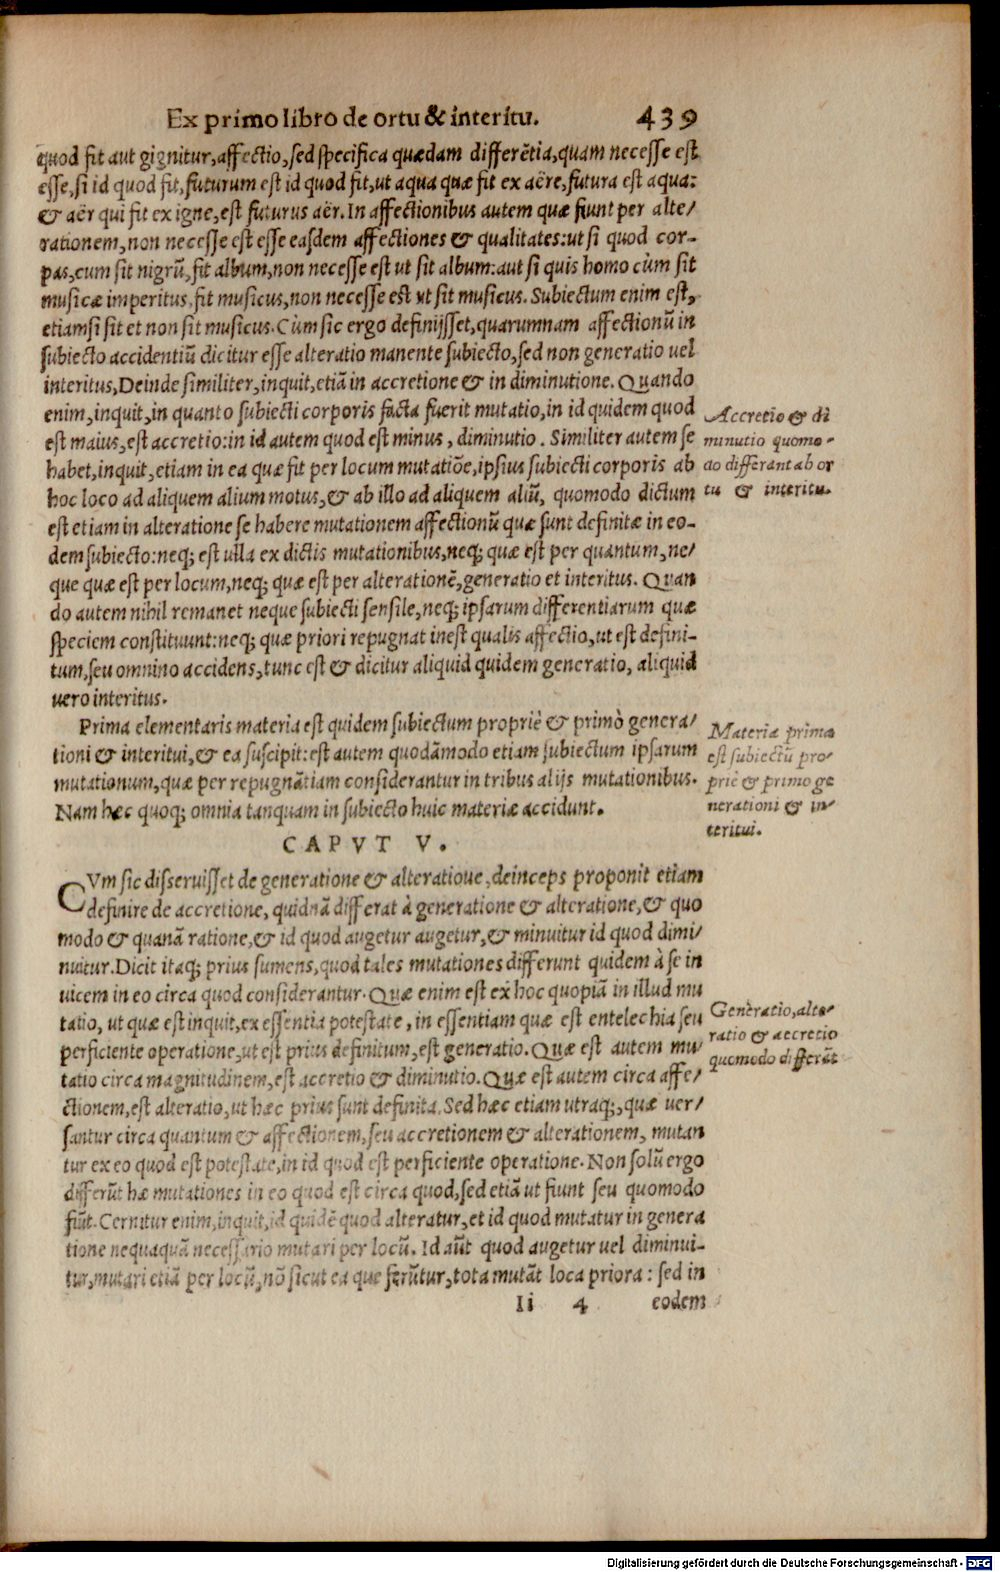 Ex primo libro de ortu & interitu. 439
quod fit aut gignitur, affectio, sed specifica quædam differẽtia, quam necesse est
esse, si id quod fit, futurum est id quod fit, ut aqua quæ fit ex aëre, futura est aqua:
& aër qui fit ex igne, est futurus aër. In affectionibus autem quæ fiunt per alte/
rationem, non necesse est esse easdem affectiones & qualitates: ut si quod cor-
pus, cum sit nigrũ, fit album, non necesse est ut sit album: aut si quis homo cùm sit
musicæ imperitus, fit musicus, non necesse est ut sit musicus. Subiectum enim est,
etiamsi sit et non sit musicus. Cùm sic ergo definijsset, quarumnam affectionũ in
subiecto accidentiũ dicitur esse alteratio manente subiecto, sed non generatio uel
interitus, Deinde similiter, inquit, etiã in accretione & in diminutione. Quando
enim, inquit, in quanto subiecti corporis facta fuerit mutatio, in id quidem quod
est maius, est accretio: in id autem quod est minus, diminutio. Similiter autem se
habet, inquit, etiam in ea quæ fit per locum mutatiõe, ipsius subiecti corporis ab
hoc loco ad aliquem alium motus, & ab illo ad aliquem aliũ, quomodo dictum
est etiam in alteratione se habere mutationem affectionũ quæ sunt definitæ in eo-
dem subiecto: neq; est ulla ex dictis mutationibus, neq; quæ est per quantum, ne/
que quæ est per locum, neq; quæ est per alterationẽ, generatio et interitus. Quan
do autem nihil remanet neque subiecti sensile, neq; ipsarum differentiarum quæ
speciem constituunt: neq; quæ priori repugnat inest qualis affectio, ut est defini-
tum, seu omnino accidens, tunc est & dicitur aliquid quidem generatio, aliquid
uero interitus.
Accretio & di
minutio quomo-
do differant ab or
tu & interitu.
Prima elementaris materia est quidem subiectum propriè & primò genera/
tioni & interitui, & ea suscipit: est autem quodãmodo etiam subiectum ipsarum
mutationum, quæ per repugnãtiam considerantur in tribus alijs mutationibus.
Nam hæc quoq; omnia tanquam in subiecto huic materiæ accidunt.
Materia prima
est subiectũ pro/
priè & primo ge
nerationi & in/
teritui.
CAPVT V.
CVm sic disseruisset de generatione & alteratione, deinceps proponit etiam
definire de accretione, quidnã differat à generatione & alteratione, & quo
modo & quanã ratione, & id quod augetur augetur, & minuitur id quod dimi/
nuitur. Dicit itaq; prius sumens, quod tales mutationes differunt quidem à se in
uicem in eo circa quod considerantur. Quæ enim est ex hoc quopiã in illud mu
tatio, ut quæ est inquit, ex essentia potestate, in essentiam quæ est entelechia seu
perficiente operatione, ut est prius definitum, est generatio. Quæ est autem mu/
tatio circa magnitudinem, est accretio & diminutio. Quæ est autem circa affe/
ctionem, est alteratio, ut hæc prius sunt definita. Sed hæc etiam utraq;, quæ uer/
santur circa quantum & affectionem, seu accretionem & alterationem, mutan
tur ex eo quod est potestate, in id quod est perficiente operatione. Non solũ ergo
differũt hæ mutationes in eo quod est circa quod, sed etiã ut fiunt seu quomodo
fiũt. Cernitur enim, inquit, id quidẽ quod alteratur, et id quod mutatur in genera
tione nequaquã necessario mutari per locũ. Id aũt quod augetur uel diminui-
tur, mutari etiã per locũ, nõ sicut ea que ferũtur, tota mutãt loca priora: sed in
Generatio, alte/
ratio & accretio
quomodo differãt
Ii 4 eodem
Digitalisierung gefördert durch die Deutsche Forschungsgemeinschaft - DFG